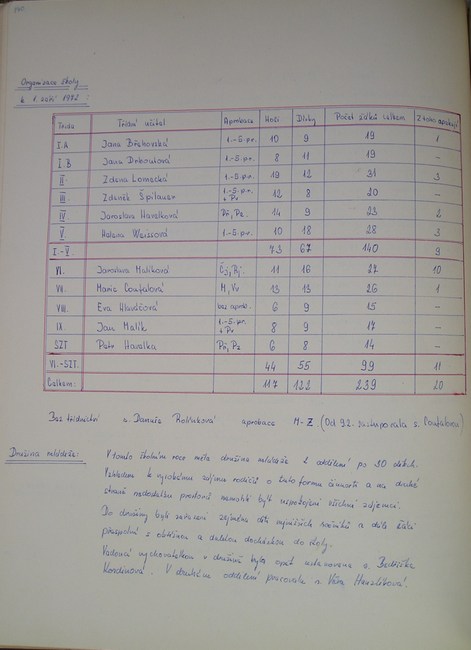 Organizace školy
k 1. září 1982 :
Třída Třídní učitel Aprobace Hoši Dívky Počet žáků celkem Z toho opakují
I.A Jana Břehovská 1.-5.p.r. 10 9 19 1
I.B Jana Drboutová 1.-5.p.r. 8 11 19 -
II. Zdena Lomecká 1.-5.p.r. 19 12 31 3
III. Zdeněk Špilauer 1.-5.p.r. + Pv 12 8 20 -
IV Jaroslava Havelková Př, Pz. 14 9 23 2
V. Helena 1.-5.p.r. 10 18 28 3
I.-V. 73 67 140 9
VI. Jaroslava Malíková Čj, Rj. 11 16 27 10
VII. Marie Coufalová M, Vv 13 13 26 1
VIII. Eva bez aprob. 6 9 15 -
IX. Jan Malík 1.-5.p.r. + Pv 8 9 17 -
SZT Petr Havelka Př, Pz 6 8 14 -
VI.-SZT. 44 55 99 11
Celkem: 117 122 239 20
Bez třídnictví s. Danuše aprobace M-Z. (Od 9.2. zastupovala s. Coufalovou)
Družina mládeže: V tomto školním roce měla družina mládeže 2 oddělení po 30 dětech.
Vzhledem k vyrobnímu zájmu rodičů o tuto formu činnosti a na druhé
straně nedostatku prostorů nemohli být uspokojeni všichni zájemci.
Do družiny byli zařazeni zejména děti nejnižších ročníků a dále žáci
přespolní z obtížnou a dalekou docházkou do školy.
Vedoucí vychovatelkou v družině byla opět ustanovena s. Bedřiška
Kondinová. V druhém oddělení pracovala s. Věra Hanzlíková.